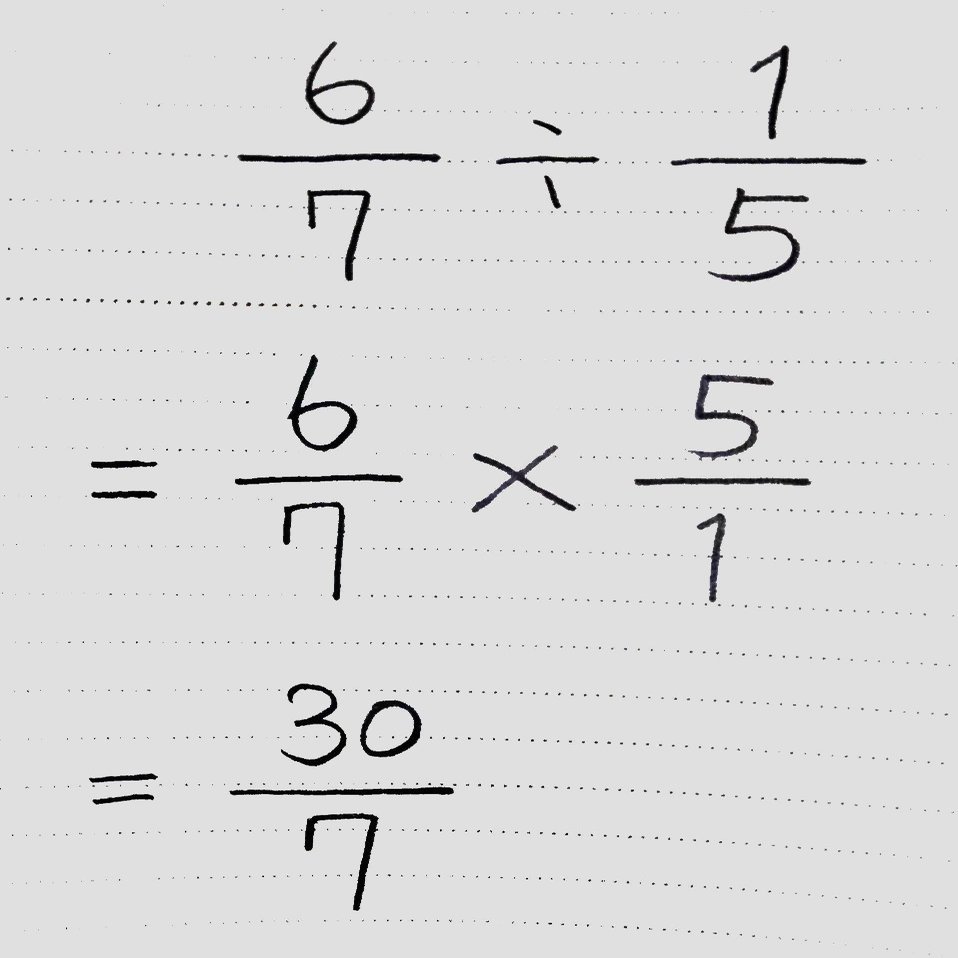 6/7 ÷ 1/5
= 6/7 × 5/1
= 30/7